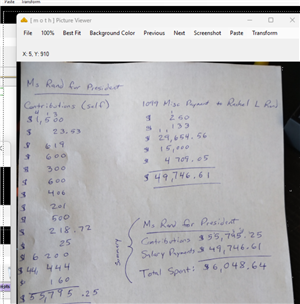 Paste Transform
[ m o t h ] Picture Viewer
File 100% Best Fit Background Color Previous Next Screenshot Paste Transform
X: 5, Y: 910
Ms Rand for President
Contributions (self)
$ 1,500
$ 23.53
$ 619
$ 600
$ 300
$ 600
$ 406
$ 201
$ 500
$ 218.72
$ 25
$ 6200
$ 44 444
$ 160
$ 55,795.25
1099 Misc Payment to Rachel L Rand
$ 250
$ 133
$ 29,654.56
$ 15,000
$ 4709.05
$ 49,746.61
Summary
Ms Rand for President
Contributions $ 55,795.25
Salary Payments $ 49,746.61
Total Spent: $ 6,048.64